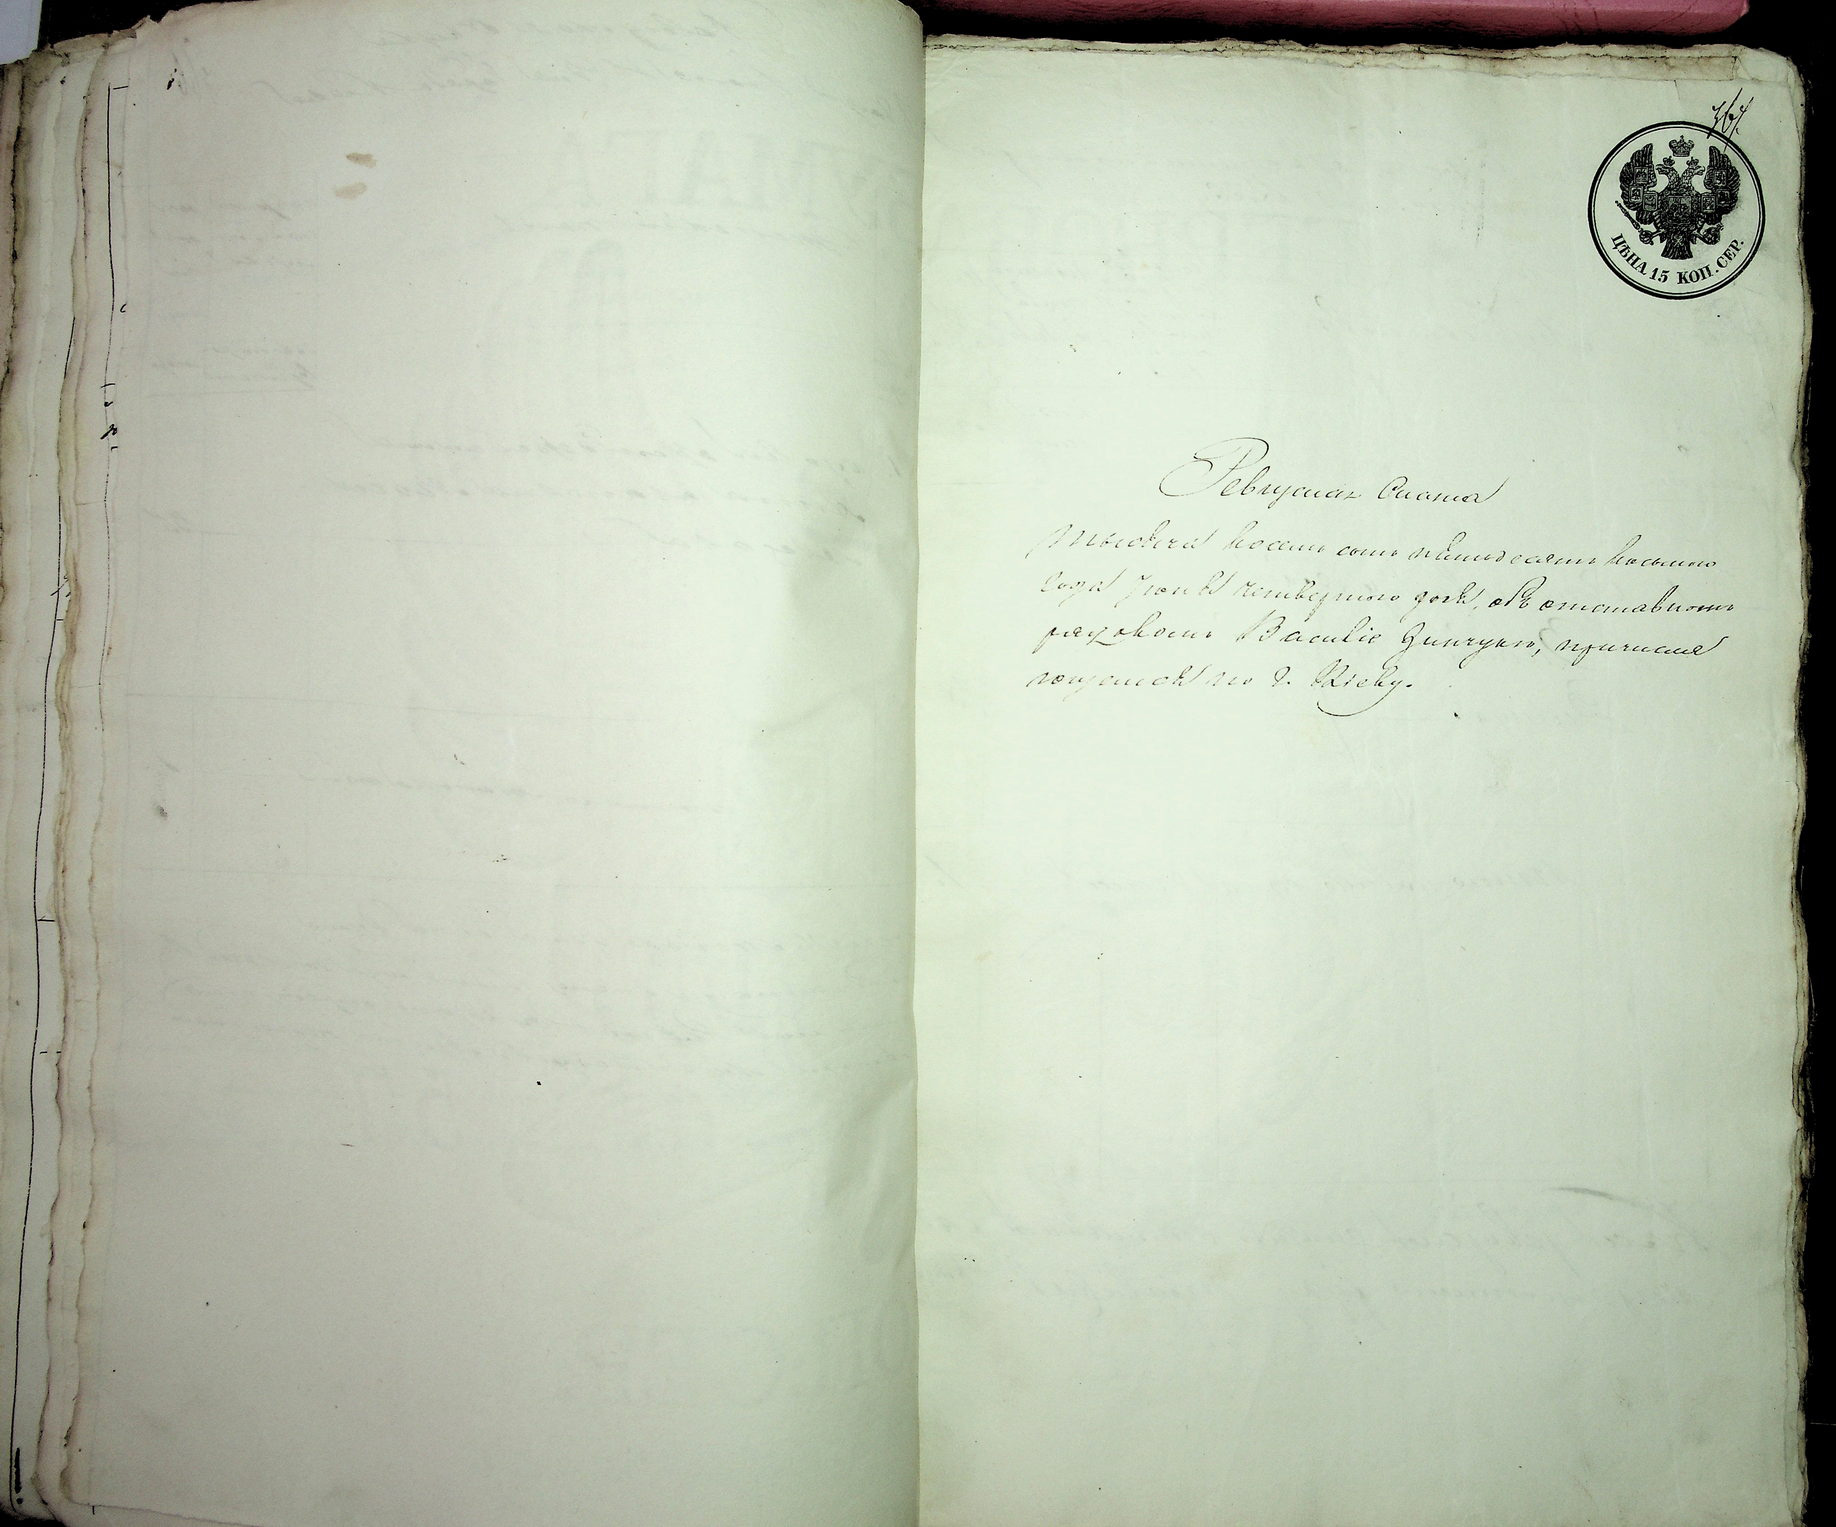 367.
ЦѢНА 15 КОП. СЕР.
Ревизская Сказка
Тысяча восемь сотъ пятьдесятъ восьмого
года Іюня четвертого дня, объ отставномъ
рядовомъ Василіе Зинчукѣ,
по г. Кіеву.